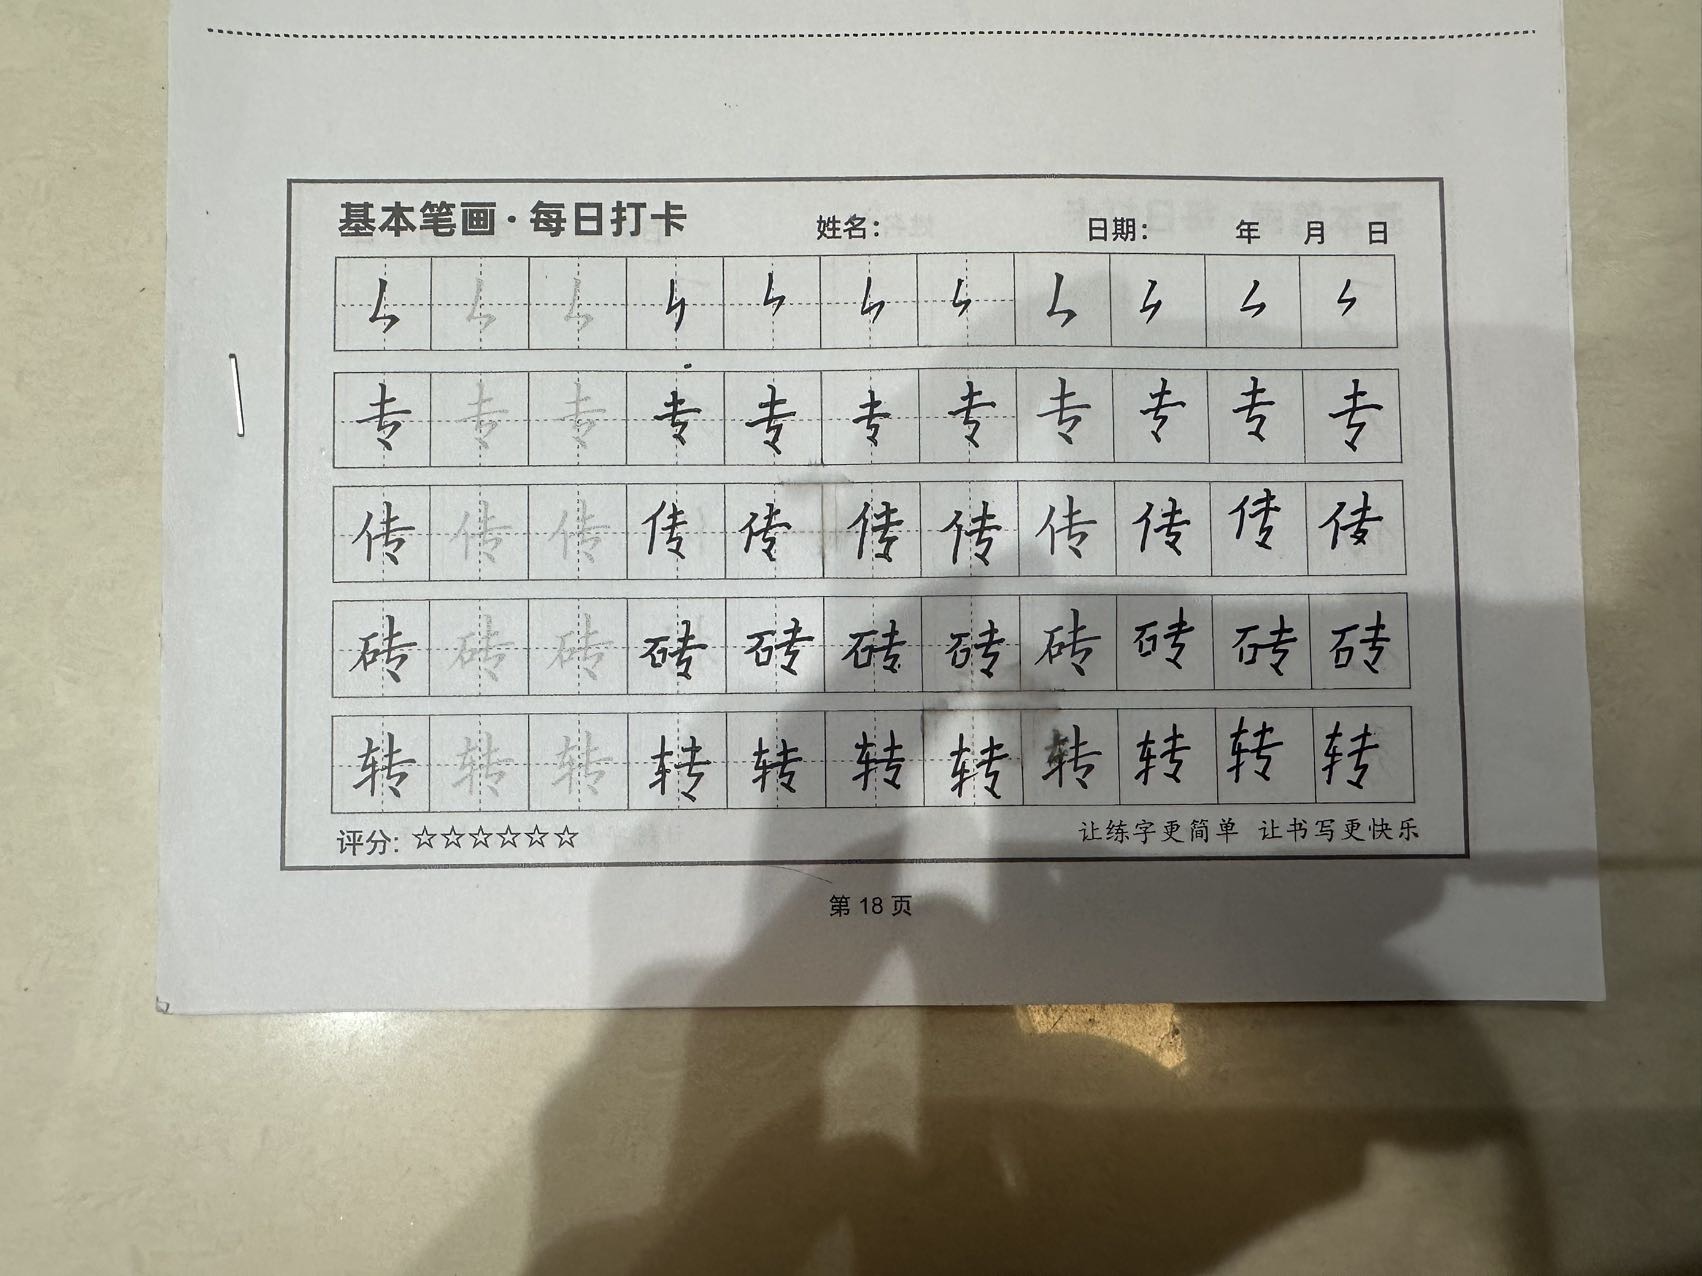 基本笔画·每日打卡 姓名: 日期: 年 月 日
专 专 专 专 专 专 专 专 专 专 专
传 传 传 传 传 传 传 传 传 传 传
砖 砖 砖 砖 砖 砖 砖 砖 砖 砖 砖
转 转 转 转 转 转 转 转 转 转 转
评分: ☆☆☆☆☆☆ 让练字更简单 让书写更快乐
第 18 页